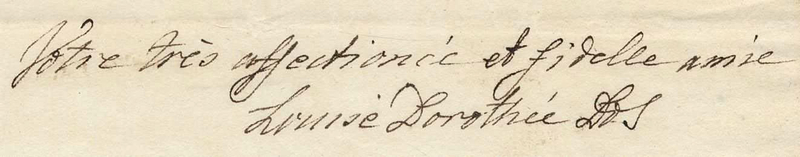 Votre très affectionée et fidelle amie
Louise Dorothée DdS